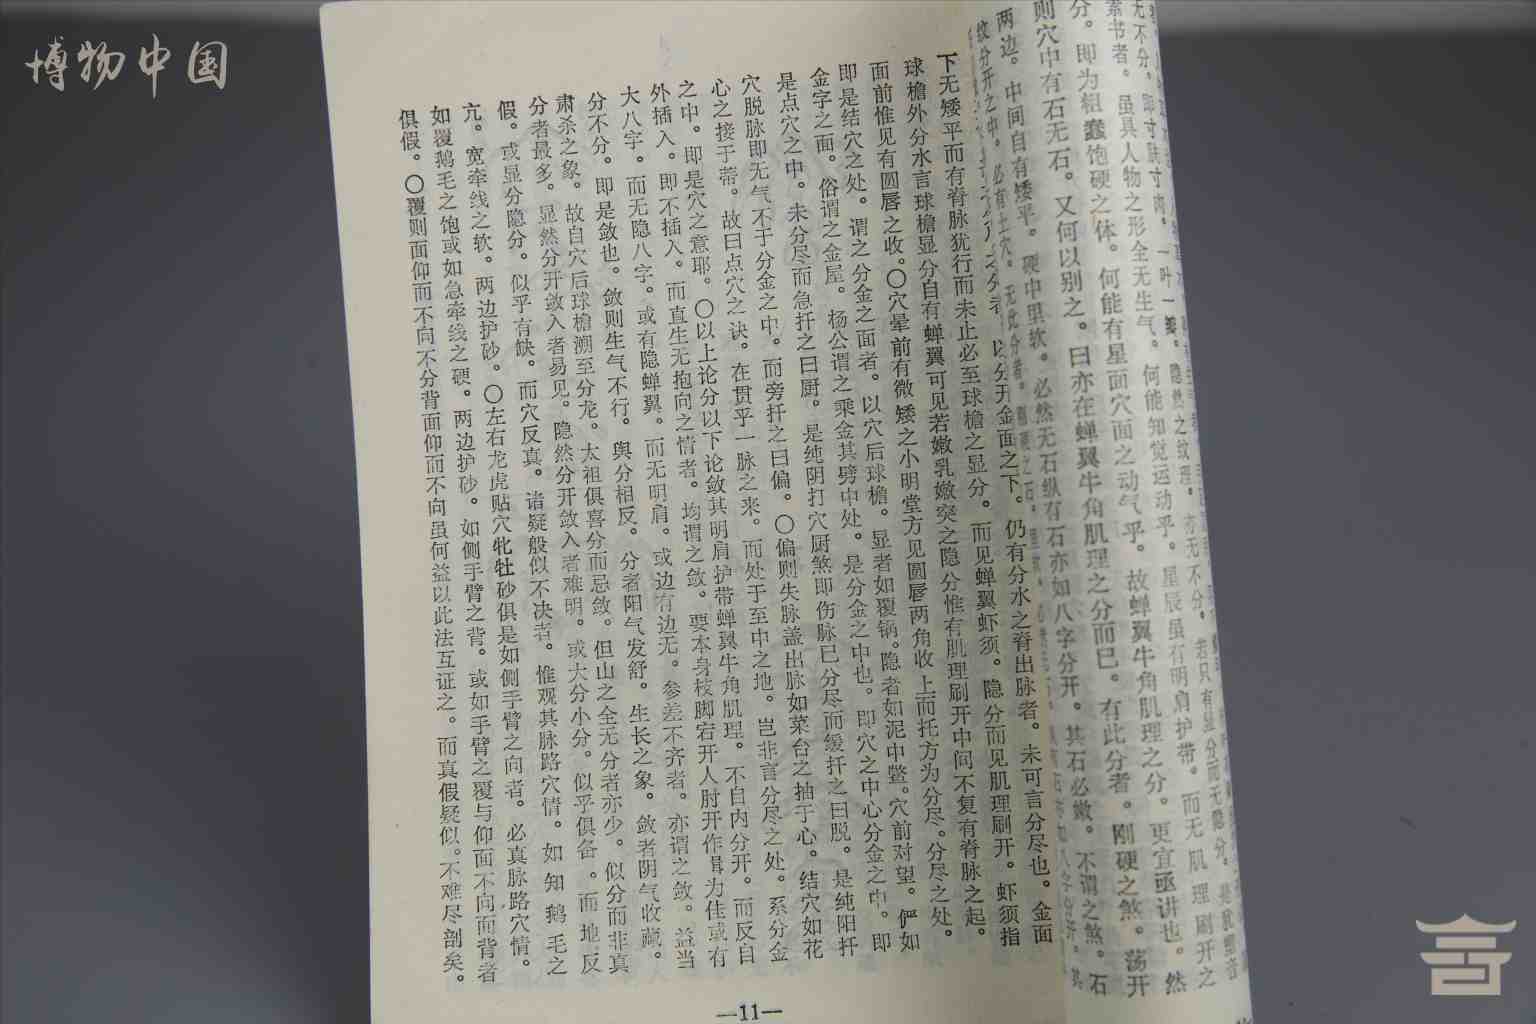 博物中国
无不分。即寸肤寸肉。一叶一瓣。隐然之纹理。亦无不分。若只有显分而无隐分。是犹塑
素书者。虽具人物之形全无生气。何能知觉运动乎。星辰虽有明肩护带。而无肌理刷开之
分。即为粗蠢饱硬之体。何能有星面穴面之动气乎。故蝉翼牛角肌理之分。更宜亟讲也。然
则穴中有石无石。又何以别之。曰亦在蝉翼牛角肌理之分而已。有此分者。刚硬之煞。荡开
两边。中间自有矮平。硬中里软。必然无石纵有石亦如八字分开。其石必嫩。不谓之煞。石
纹分开之中。必有土穴。无此分者。
以分开金面之下。仍有分水之脊出脉者。未可言分尽也。金面
下无矮平而有脊脉犹行而未止必至球檐之显分。而见蝉翼虾须。隐分而见肌理刷开。虾须指
球檐外分水言球檐显分自有蝉翼可见若嫩乳嫩突之隐分惟有肌理刷开中间不复有脊脉之起。
面前惟见有圆唇之收。〇穴晕前有微矮之小明堂方见圆唇两角收上而托方为分尽。分尽之处。
即是结穴之处。谓之分金之面者。以穴后球檐。显者如覆锅。隐者如泥中鳖。穴前对望。俨如
金字之面。俗谓之金屋。杨公谓之乘金其劈中处。是分金之中也。即穴之中心分金之中。即
是点穴之中。未分尽而急扦之曰厨。是纯阴打穴厨煞即伤脉已分尽而缓扦之曰脱。是纯阳扦
穴脱脉即无气不于分金之中。而旁扦之曰偏。〇偏则失脉盖出脉如菜台之抽于心。结穴如花
心之接于蒂。故曰点穴之诀。在贯乎一脉之来。而处于至中之地。岂非言分尽之处。系分金
之中。即是穴之意耶。〇以上论分以下论敛其明肩护带蝉翼牛角肌理。不自内分开。而反自
外插入。即不插入。而直生无抱向之情者。均谓之敛。要本身枝脚宕开人肘开作揖为佳或有
大八字。而无隐八字。或有隐蝉翼。而无明肩。或边有边无。参差不齐者。亦谓之敛。益当
分不分。即是敛也。敛则生气不行。舆分相反。分者阳气发舒。生长之象。敛者阴气收藏。
肃杀之象。故自穴后球檐溯至分龙。太祖俱喜分而忌敛。但山之全无分者亦少。似分而非真
分者最多。显然分开敛入者易见。隐然分开敛入者难明。或大分小分。似乎俱备。而地反
假。或显分隐分。似乎有缺。而穴反真。诸疑般似不决者。惟观其脉路穴情。如知鹅毛之
亢。宽牵线之软。两边护砂。〇左右龙虎贴穴牝牡砂俱是如侧手臂之向者。必真脉路穴情。
如覆鹅毛之饱或如急牵线之硬。两边护砂。如侧手臂之背。或如手臂之覆与仰面不向而背者
俱假。〇覆则面仰而不向不分背面仰而不向虽何益以此法互证之。而真假疑似。不难尽剖矣。
—11—